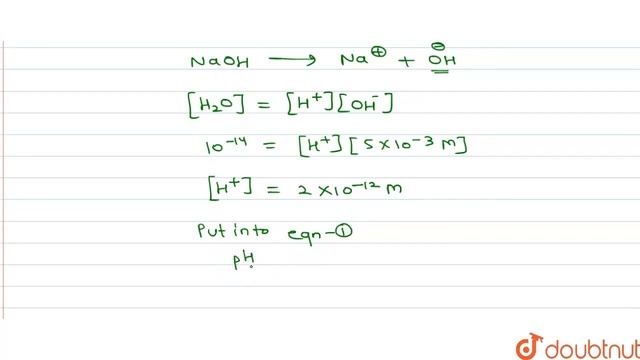 NaOH ⟶ Na⊕ + OH⊖
[H₂O] = [H⁺][OH⁻]
10⁻¹⁴ = [H⁺][5×10⁻³ M]
[H⁺] = 2×10⁻¹² M
Put into eqn-①
pH
doubtnut